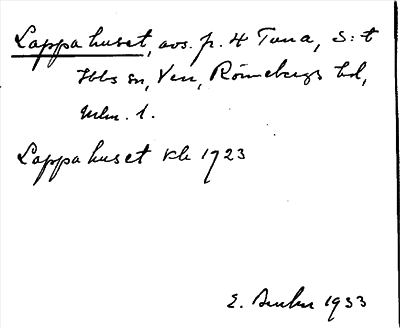 Lappahuset, avs. p. 4 Tuna, S:t
Ibbs sn, Ven, Rönnebergs hd,
Mlm. l.
Lappahuset kb 1923
E. 1933